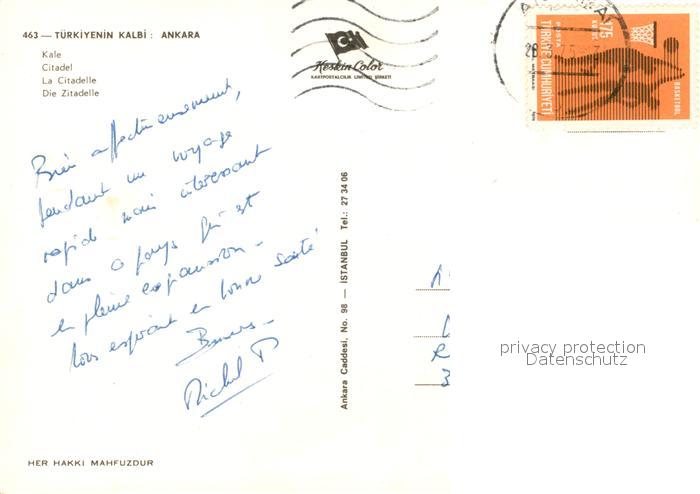 463 — TÜRKİYENİN KALBİ : ANKARA
Kale
Citadel
La Citadelle
Die Zitadelle
Keskin Color
KARTPOSTALCILIK LIMITED ŞİRKETİ
175
KURUŞ
POSTA
TÜRKİYE CUMHURİYETİ
BASKETBOL
Bien affectueusement,
pendant un voyage
rapide mais intéressant
dans ce pays qui est
en pleine expansion –
Vous espérant en bonne santé
Baisers –
Michel P
Ankara Caddesi, No. 98 — İSTANBUL Tel.: 27 34 06
privacy protection
Datenschutz
HER HAKKI MAHFUZDUR